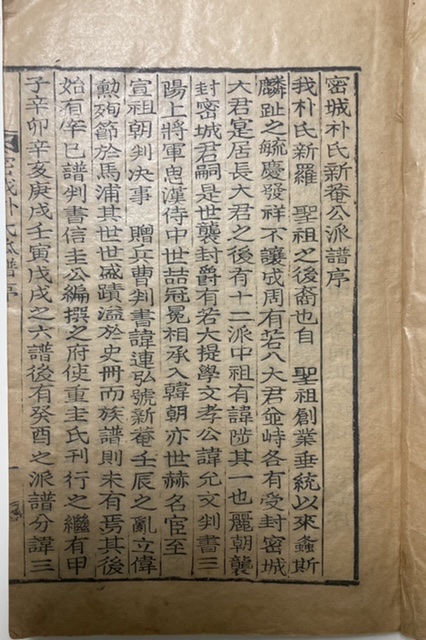 密城朴氏新菴公派譜序
我朴氏新羅　聖祖之後裔也自　聖祖創業垂統以來螽斯
麟趾之毓慶發祥不讓成周有若八大君並峙各有受封密城
大君寔居長大君之後有十二派中祖有諱陟其一也麗朝襲
封密城君嗣是世襲封爵有若大提學文孝公諱允文判書三
陽上將軍思漢侍中世喆冠冕相承入韓朝亦世赫名宦至
宣祖朝判决事　贈兵曹判書諱連弘號新菴壬辰之亂立偉
勲殉節於馬浦其世世盛蹟溢於史冊而族譜則未有焉其後
始有辛巳譜判書信圭公編撰之府使重圭氏刊行之繼有甲
子辛卯辛亥庚戌壬寅戊戌之六譜後有癸酉之派譜分諱三
密城朴氏派譜序
一